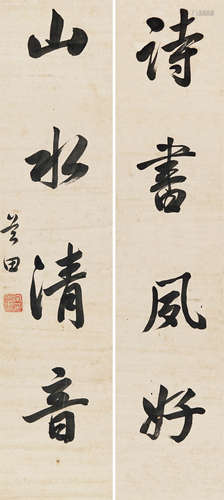 詩書夙好
山水清音
芝田